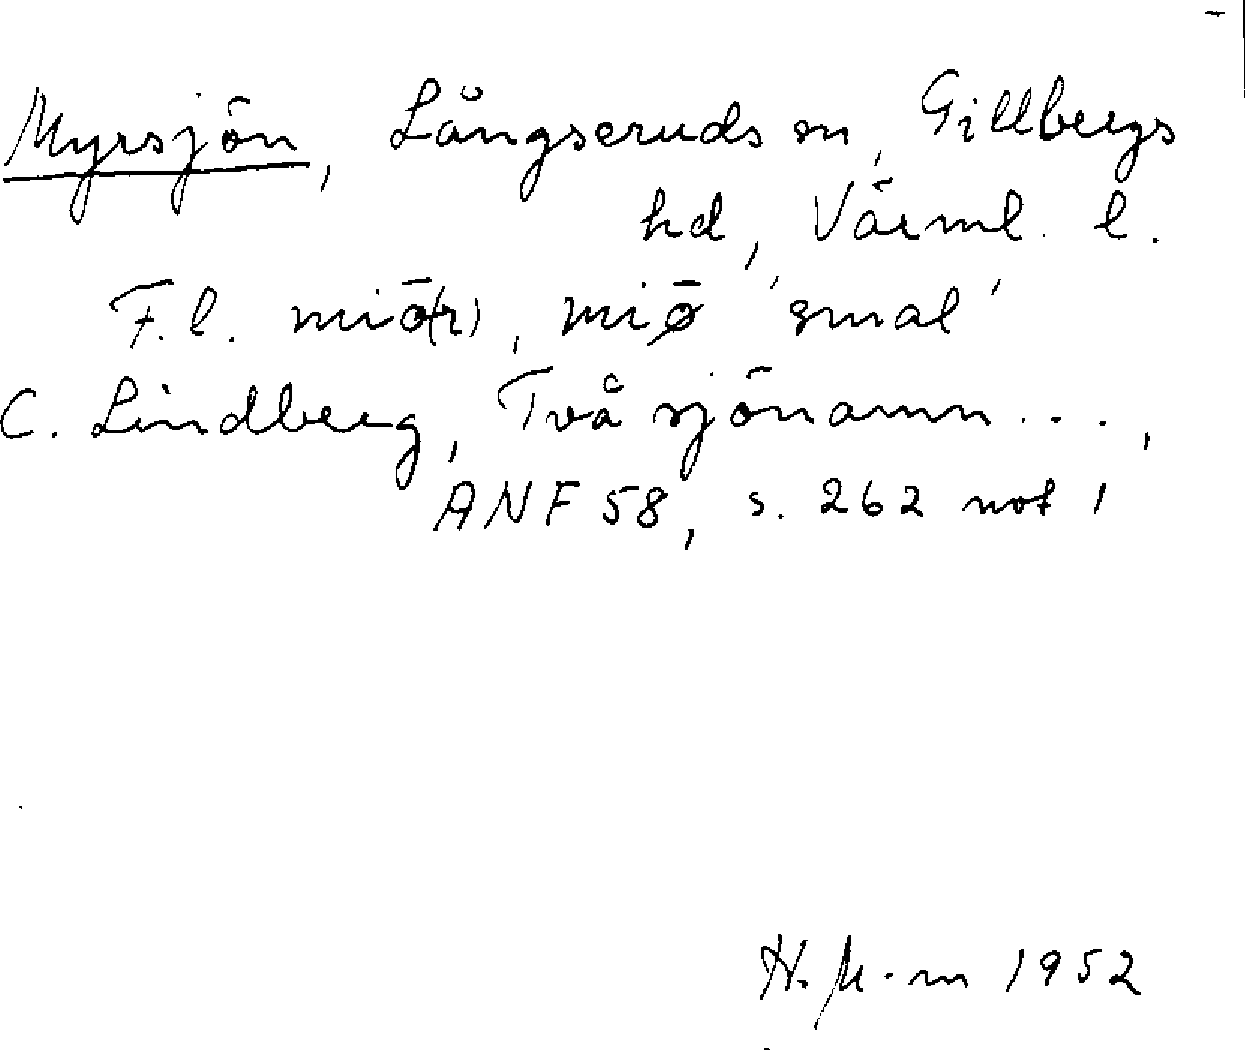 Myrsjön, Långseruds sn, Gillbergs
hd, Värml. l.
F.l. miō(r), miø̄ 'smal'
C. Lindberg, Två sjönamn...,
ANF 58, s. 262 not 1
H. M-m 1952